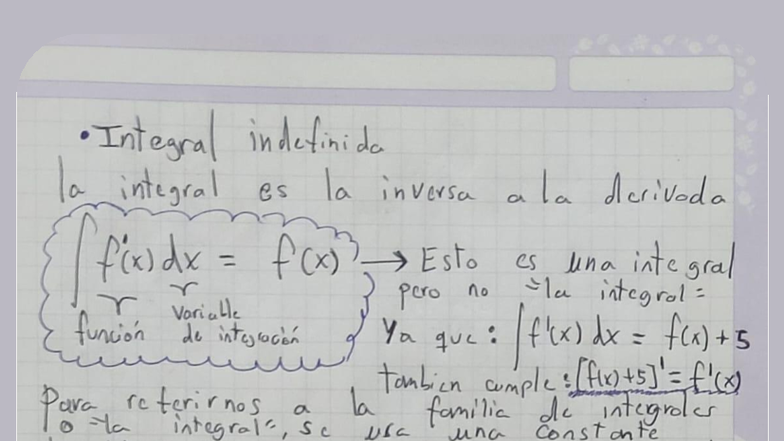 • Integral indefinida
la integral es la inversa a la derivada
∫ f'(x) dx = f(x) → Esto es una integral
pero no "la integral"
función variable de integración
Ya que: ∫ f'(x) dx = f(x) + 5
tambien cumple: [f(x)+5]' = f'(x)
Para referirnos a la familia de integrales
o "la integral", se usa una constante